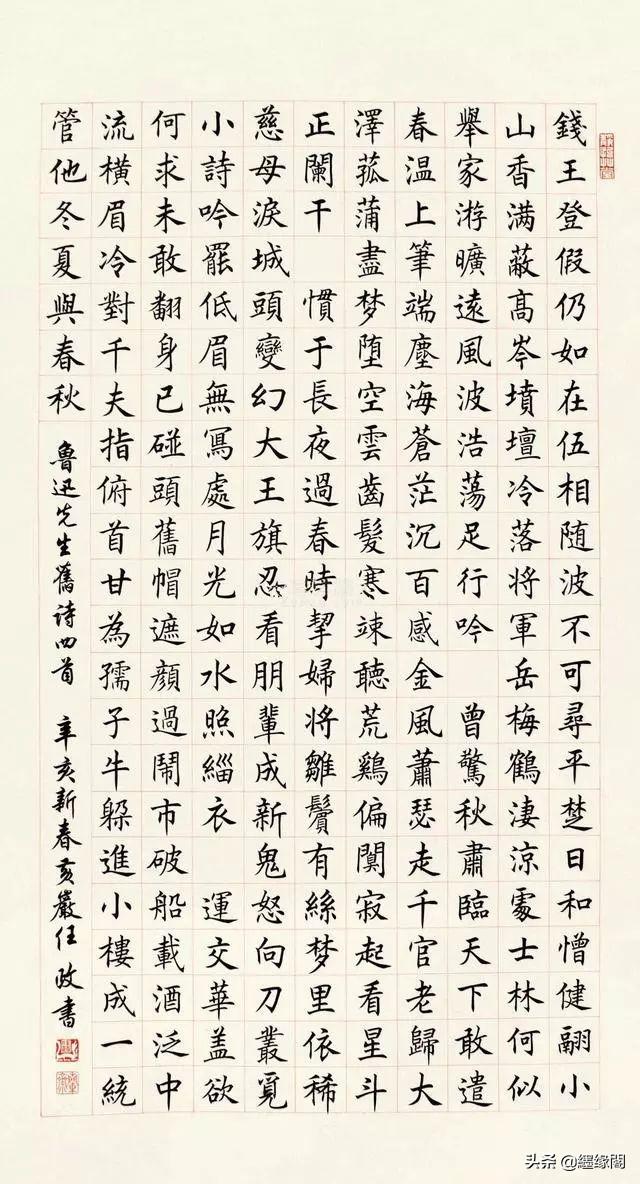 錢王登假仍如在伍相随波不可尋平楚日和憎健翮小
山香满蔽高岑墳壇冷落将軍岳梅鶴淒涼處士林何似
舉家游曠遠風波浩蕩足行吟　曾驚秋肅臨天下敢遣
春温上筆端塵海蒼茫沉百感金風蕭瑟走千官老歸大
澤菰蒲盡梦堕空雲齒髮寒竦聽荒鷄偏闃寂起看星斗
正闌干　慣于長夜過春時挈婦将雛鬢有絲梦里依稀
慈母淚城頭變幻大王旗忍看朋輩成新鬼怒向刀叢覓
小詩吟罷低眉無寫處月光如水照緇衣　運交華盖欲
何求未敢翻身已碰頭舊帽遮顔過鬧市破船載酒泛中
流橫眉冷對千夫指俯首甘為孺子牛躲進小樓成一統
管他冬夏與春秋　魯迅先生舊诗四首　辛亥新春黄巖任政書
头条 @纒缘閣